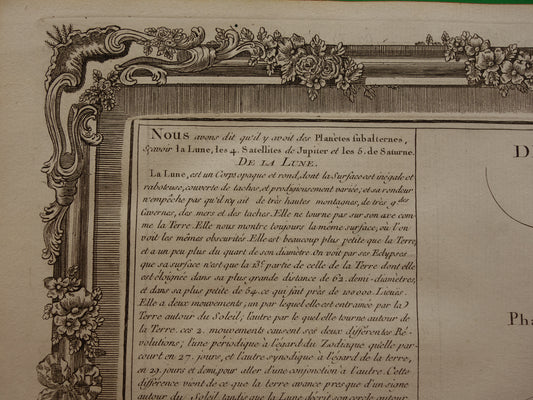 Nous avons dit qu'il y avoit des Planetes subalternes,
Sçavoir la Lune, les 4. Satellites de Jupiter et les 5. de Saturne.
DE LA LUNE.
La Lune, est un Corps opaque et rond, dont la Surface est inégale et
raboteuse, couverte de taches, et prodigieusement variée, et sa rondeur
n'empêche pas qu'il n'y ait de très hautes montagnes, de très gdes
Cavernes, des mers et des taches. Elle ne tourne pas sur son axe com-
me la Terre. Elle nous montre toujours la même surface; où l'on
voit les mêmes obscurités. Elle est beaucoup plus petite que la Terre,
et a un peu plus du quart de son diametre. On voit par ses Eclypses
que sa surface n'est que la 13e. partie de celle de la Terre dont elle
est éloignée dans sa plus grande distance de 62. demi-diametres,
et dans sa plus petite de 54. ce qui fait près de 100000 Lieues.
Elle a deux mouvemens; un par lequel elle est entrainée par la
Terre autour du Soleil; l'autre par le quel elle tourne autour de
la Terre. ces 2. mouvements causent ses deux différentes Ré-
volutions; l'une périodique à l'égard du Zodiaque qu'elle par-
court en 27. jours, et l'autre synodique à l'égard de la terre,
en 29. jours et demi, pour aller d'une conjonction à l'autre. Cette
différence vient de ce que la terre avance pres que d'un signe
autour du Soleil tandis que la Lune décrit son cercle autour
D
Pha